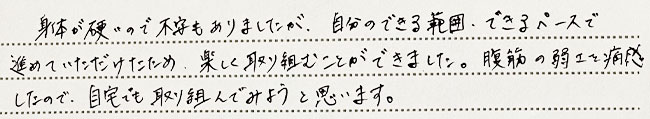 身体が硬いので不安もありましたが、自分のできる範囲・できるペースで
進めていただけたため、楽しく取り組むことができました。腹筋の弱さを痛感
したので、自宅でも取り組んでみようと思います。